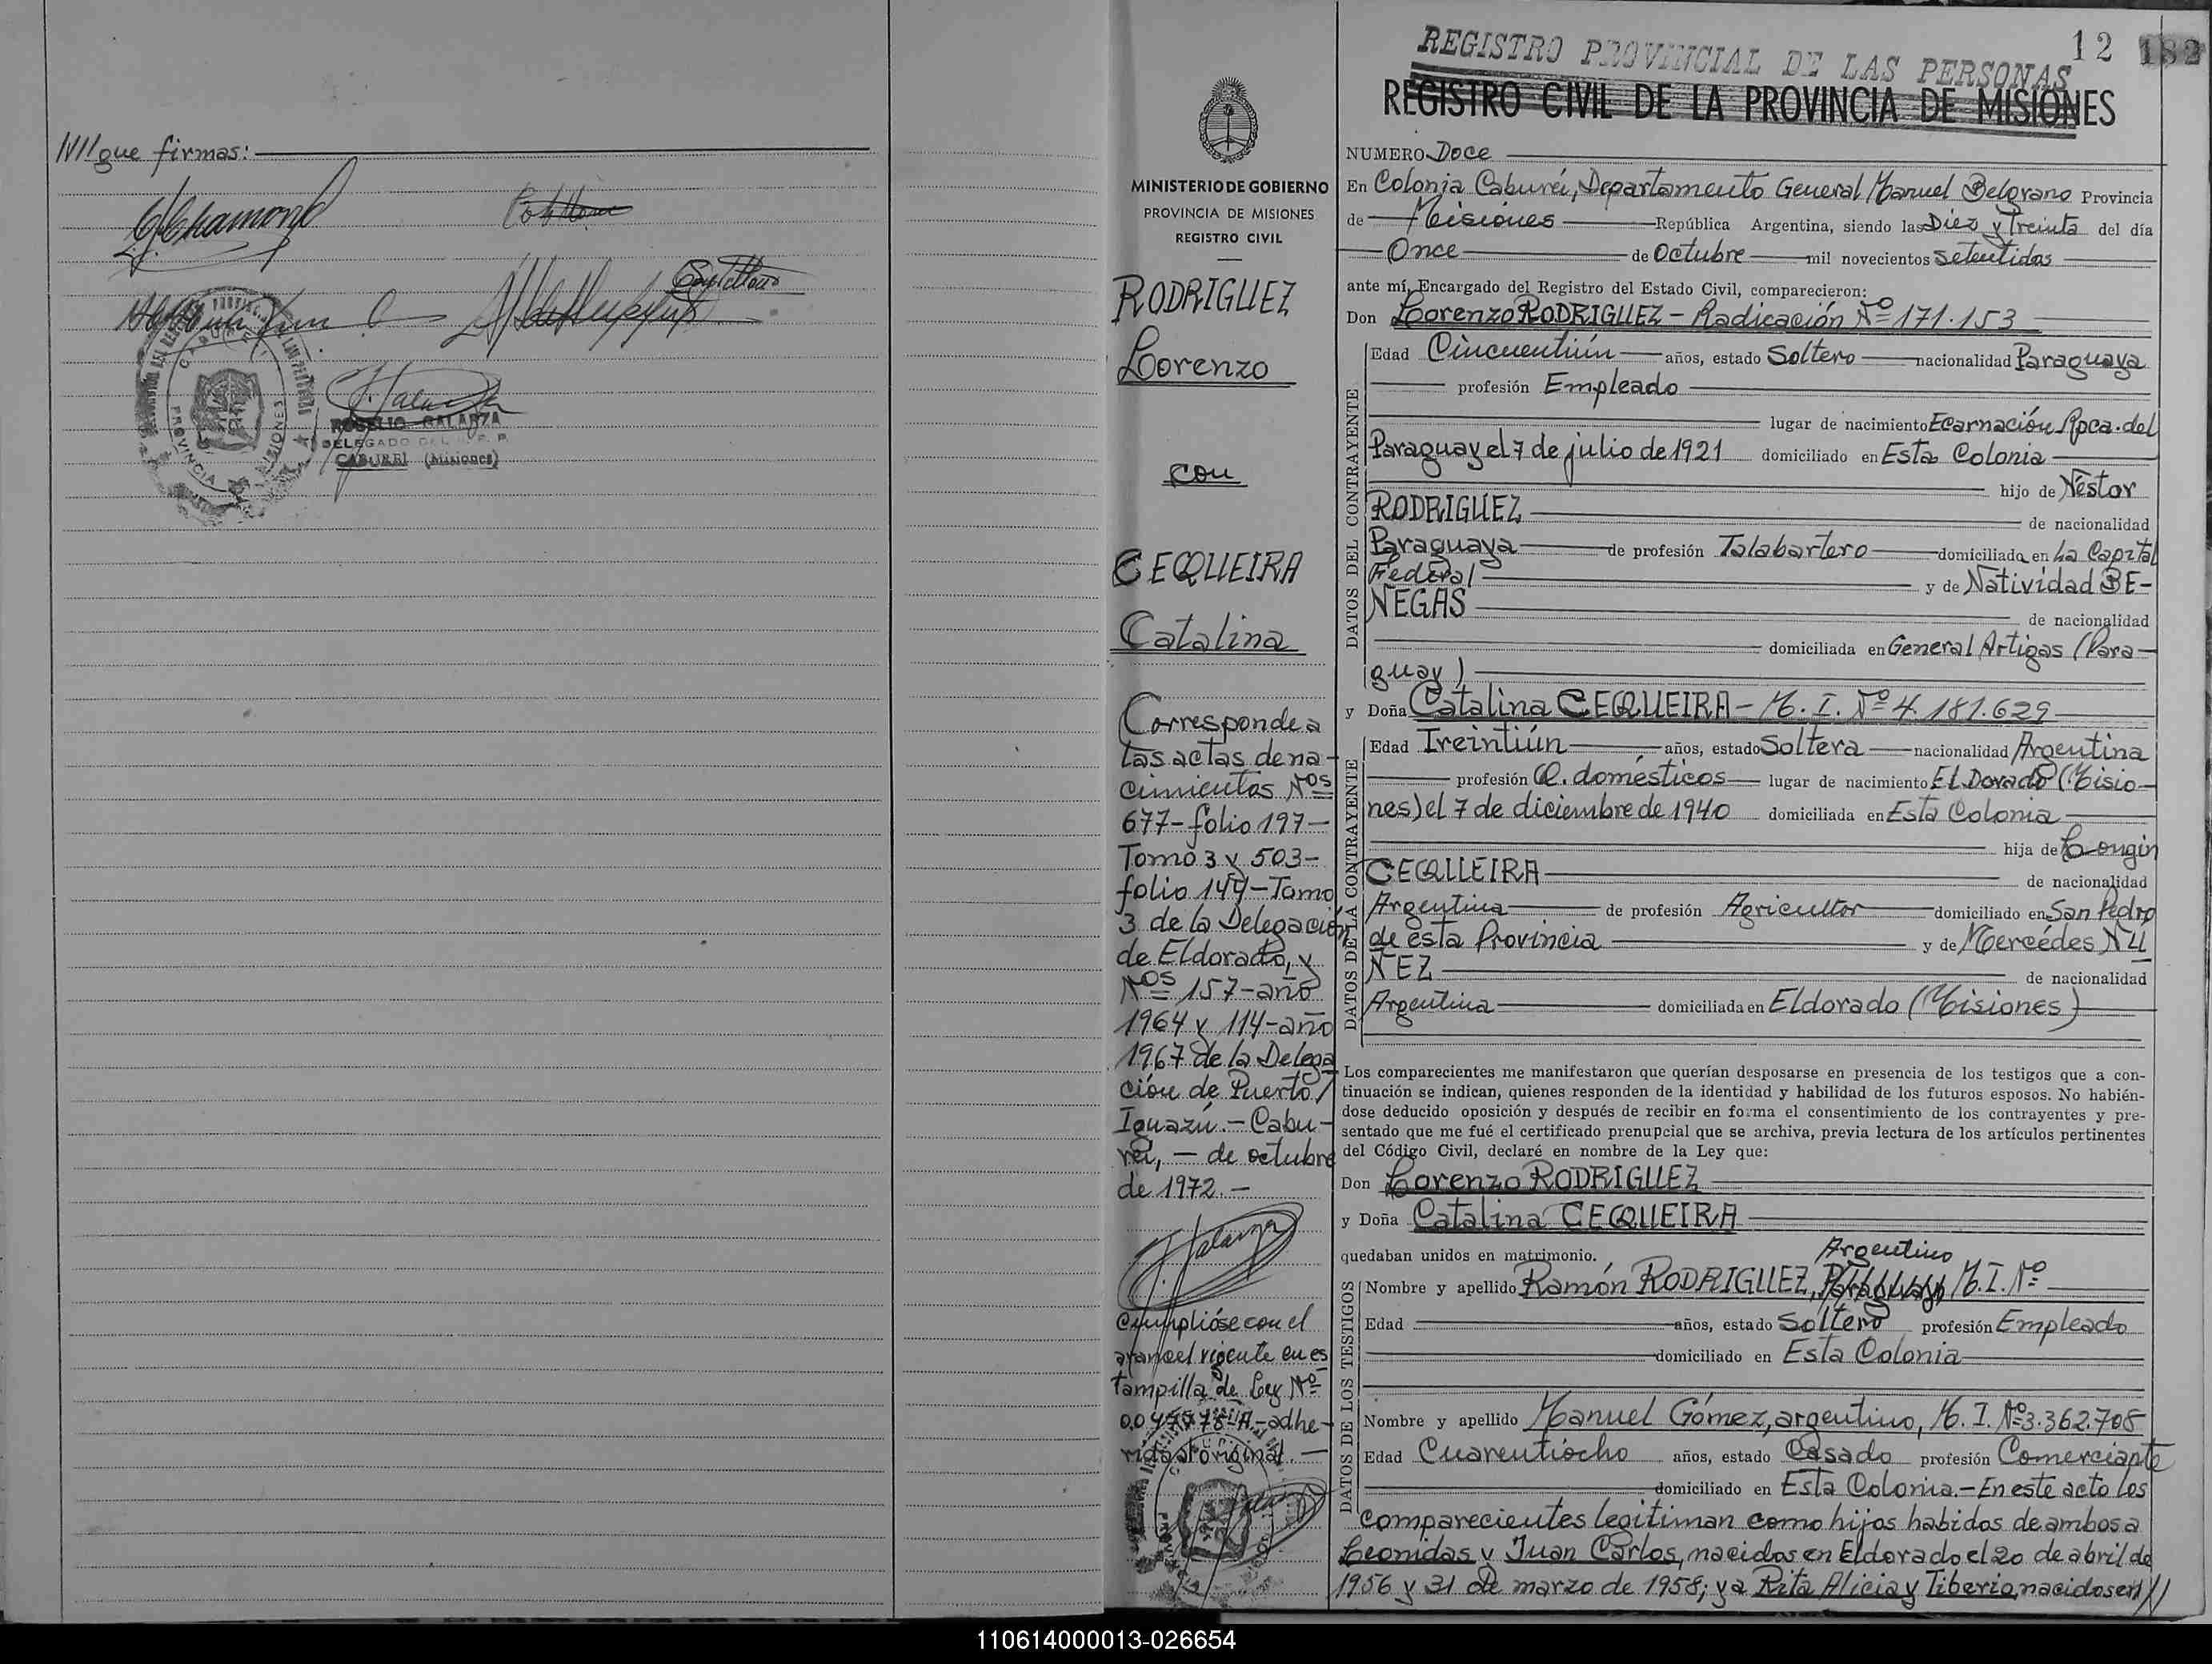 //// que firmas:
ROGELIO GALARZA
DELEGADO DEL R. P. P.
CABUREI (Misiones)
PROVINCIA DE MISIONES
REGISTRO PROVINCIAL DE LAS PERSONAS
12 182
REGISTRO CIVIL DE LA PROVINCIA DE MISIONES
MINISTERIO DE GOBIERNO
PROVINCIA DE MISIONES
REGISTRO CIVIL
RODRIGUEZ
Lorenzo
con
CEQUEIRA
Catalina
Corresponde a
las actas de na-
cimientos Nos
677-folio 197-
Tomo 3 y 503-
folio 144-Tomo
3 de la Delegación
de Eldorado, y
Nos 157-año
1964 y 114-año
1967 de la Delega
ción de Puerto/
Iguazú.-Cabu-
reí, - de octubre
de 1972.-
Cumplióse con el
arancel vigente en es
tampilla de Ley Nº
adhe-
rida al original.-
NUMERO Doce
En Colonia Caburéi, Departamento General Manuel Belgrano Provincia
de Misiones República Argentina, siendo las Diez y Treinta del día
Once de Octubre mil novecientos setentidos
ante mí, Encargado del Registro del Estado Civil, comparecieron:
Don Lorenzo RODRIGUEZ - Radicación Nº 171.153
DATOS DEL CONTRAYENTE
Edad Cincuentiún años, estado Soltero nacionalidad Paraguaya
profesión Empleado
lugar de nacimiento Ecarnación Rpca. del
Paraguay el 7 de julio de 1921 domiciliado en Esta Colonia
hijo de Néstor
RODRIGUEZ de nacionalidad
Paraguaya de profesión Talabartero domiciliado en La Capital
Federal y de Natividad BE-
NEGAS de nacionalidad
domiciliada en General Artigas (Para-
guay)
y Doña Catalina CEQUEIRA - M. I. Nº 4.181.629
DATOS DE LA CONTRAYENTE
Edad Treintiún años, estado Soltera nacionalidad Argentina
profesión Q. domésticos lugar de nacimiento El Dorado (Misio-
nes) el 7 de diciembre de 1940 domiciliada en Esta Colonia
hija de Longin
CEQUEIRA de nacionalidad
Argentina de profesión Agricultor domiciliado en San Pedro
de esta Provincia y de Mercédes NU
ÑEZ de nacionalidad
Argentina domiciliada en Eldorado (Misiones)
Los comparecientes me manifestaron que querían desposarse en presencia de los testigos que a con-
tinuación se indican, quienes responden de la identidad y habilidad de los futuros esposos. No habién-
dose deducido oposición y después de recibir en forma el consentimiento de los contrayentes y pre-
sentado que me fué el certificado prenupcial que se archiva, previa lectura de los artículos pertinentes
del Código Civil, declaré en nombre de la Ley que:
Don Lorenzo RODRIGUEZ
y Doña Catalina CEQUEIRA
quedaban unidos en matrimonio.
Argentino
DATOS DE LOS TESTIGOS
Nombre y apellido Ramón RODRIGUEZ, Paraguayo M. I. Nº
Edad años, estado Soltero profesión Empleado
domiciliado en Esta Colonia
Nombre y apellido Manuel Gómez, argentino, M. I. Nº 3.362.708
Edad Cuarentiocho años, estado Casado profesión Comerciante
domiciliado en Esta Colonia.-En este acto los
comparecientes legitiman como hijos habidos de ambos a
Leonidas y Juan Carlos, nacidos en Eldorado el 20 de abril de
1956 y 31 de marzo de 1958; y a Rita Alicia y Tiberio, nacidos en //
110614000013-026654